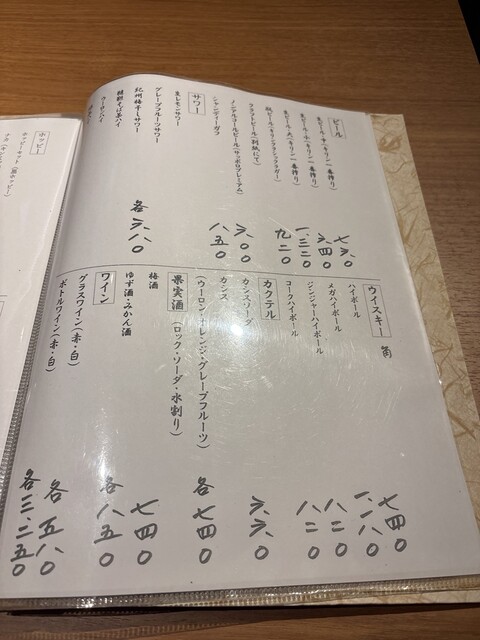 ビール
生ビール・中(キリン一番搾り)
七三〇
生ビール・小(キリン一番搾り)
六四〇
生ビール・大(キリン一番搾り)
一、三二〇
瓶ビール(キリンクラシックラガー)
九二〇
クラフトビール(別紙にて)
ノンアルコールビール(サッポロプレミアム)
六〇〇
シャンディーガフ
八五〇
サワー
生レモンサワー
グレープフルーツサワー
紀州梅干しサワー
韃靼そば茶ハイ
ウーロンハイ
各六八〇
ウイスキー
角
ハイボール
七四〇
メガハイボール
一、一八〇
ジンジャーハイボール
八二〇
コークハイボール
八二〇
カクテル
カシスソーダ
六六〇
カシス
(ウーロン・オレンジ・グレープフルーツ)
各七四〇
果実酒
(ロック・ソーダ・水割り)
梅酒
七四〇
ゆず酒・みかん酒
各八五〇
ワイン
グラスワイン(赤・白)
各五八〇
ボトルワイン(赤・白)
各三、二五〇
ホッピー